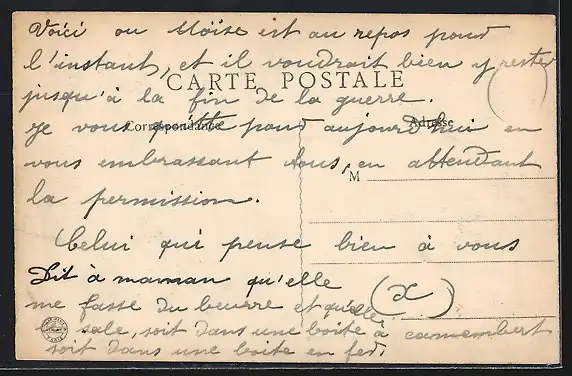 Voici ou Moïse est au repos pour
l'instant, et il voudrait bien y rester
CARTE POSTALE
jusqu'à la fin de la guerre.
Correspondance
Adresse
Je vous quitte pour aujourd'hui en
vous embrassant tous, en attendant
M
la permission.
Celui qui pense bien à vous
Dit à maman qu'elle
me fasse du beurre et qu'elle
(x)
le sale, soit dans une boite à camembert
soit dans une boite en fer.